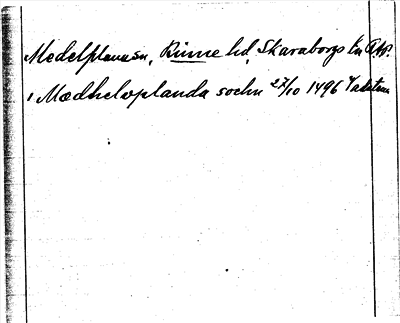 Medelplana sn, Kinne hd, Skaraborgs län
i Mædheloplanda sochn 27/10 1496